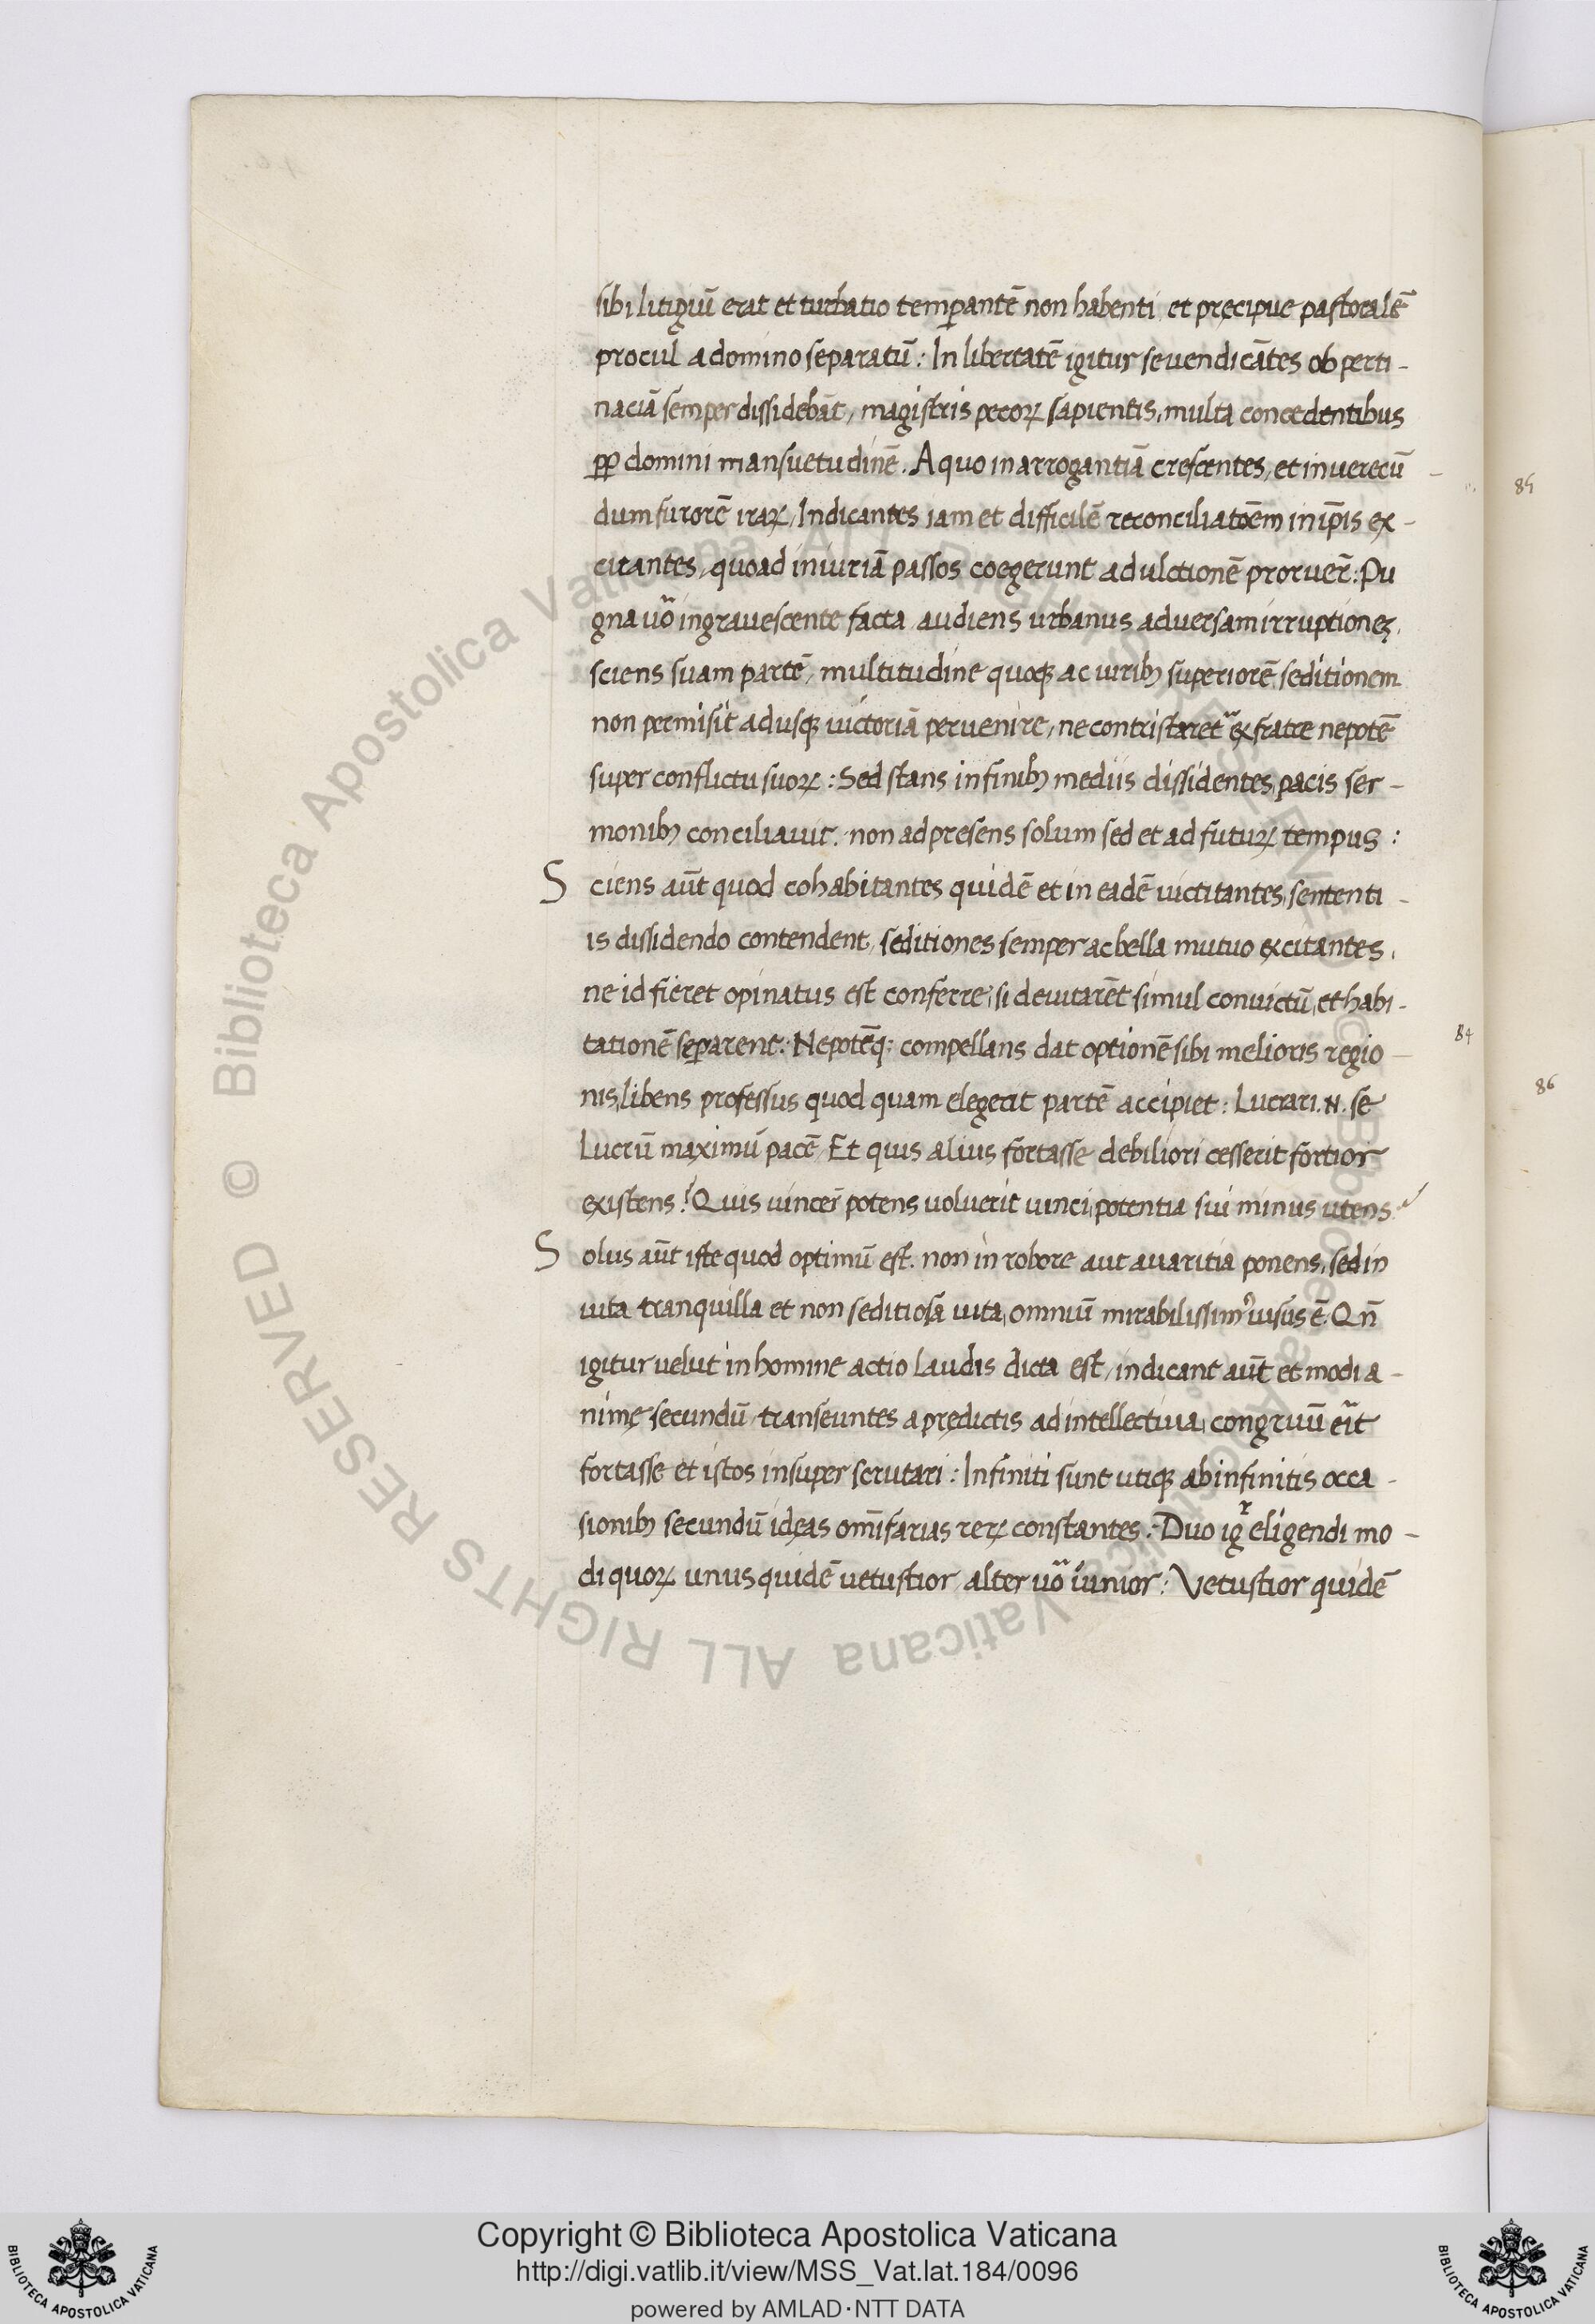 sibi litigiū erat et turbatio temperantē non habenti et pręcipue pastoralē
procul a domino separatū : In libertatē igitur se uendicātes ob perti -
naciā semper dissidebāt, magistris pecorꝝ sapientis, multa concedentibus
ꝓp domini mansuetudinē. A quo in arrogantiā crescentes, et inuerecū -
dum furorē irarꝝ, Indicantes iam et difficilē reconciliatōem in ip̄is ex -
citantes, quoad iniuriā passos coegerunt ad ulctionē proruer̄ : Pu
gna uō ingrauescente facta audiens urbanus aduersam irruptionez,
sciens suam partē, multitudine quoqꝫ ac uiribꝫ superiorē, seditionem
non permisit adusqꝫ uictoriā peruenire, ne contristaret᷑ ex fratre nepotē
super conflictu suorꝝ : Sed stans in finibꝫ mediis dissidentes, pacis ser -
monibꝫ conciliauit. non ad presens solum sed et ad futurꝝ tempus :
S ciens aūt quod cohabitantes quidē et in eadē uictitantes, sententi -
is dissidendo contendent, seditiones semper ac bella mutuo excitantes,
ne id fieret opinatus est conferre, si deuitarēt simul conuictū, et habi -
tationē separent. Nepotēq; compellans dat optionē sibi melioris regio -
nis, libens professus quod quam elegerit partē accipiet : Lucrari .N. se
Lucrū maximū pacē, Et quis alius fortasse debiliori cesserit fortior
existens ? Quis uincer̄ potens uoluerit uinci, potentia sui minus utens ?
S olus aūt iste quod optimū est. non in robore aut auaritia ponens, sed in
uita tranquilla et non seditiosa uita, omniū mirabilissimꝰ uisus ē. Qn̄
igitur uelut in homine actio Laudis dicta est, indicant aūt et modi a -
nimę secundū transeuntes a prędictis ad intellectiua, congruū eīt
fortasse et istos insuper scrutari : Infiniti sunt utiqꝫ ab infinitis occa -
sionibꝫ secundū idęas omīfarias rerꝝ constantes. Duo igr eligendi mo -
di quorꝝ unus quidē uetustior, alter uō iunior : Vetustior quidē
85
84
86
Copyright © Biblioteca Apostolica Vaticana
http://digi.vatlib.it/view/MSS_Vat.lat.184/0096
powered by AMLAD·NTT DATA
BIBLIOTECA APOSTOLICA VATICANA
BIBLIOTECA APOSTOLICA VATICANA
© Biblioteca Apostolica Vaticana ALL RIGHTS RESERVED © Biblioteca Apostolica Vaticana ALL RIGHTS RESERVED